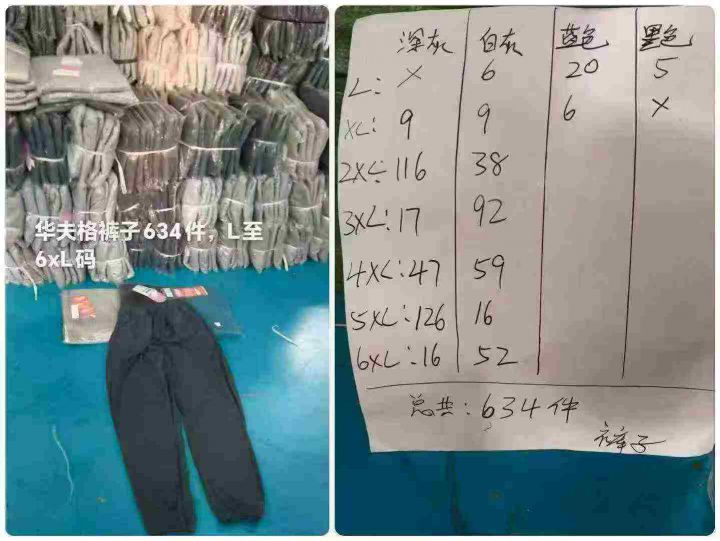 华夫格裤子634件，L至
6xL码
深灰 白灰 蓝色 黑色
L: × 6 20 5
XL: 9 9 6 ×
2XL: 116 38
3XL: 17 92
4XL: 47 59
5XL: 126 16
6XL: 16 52
总共: 634件
裤子